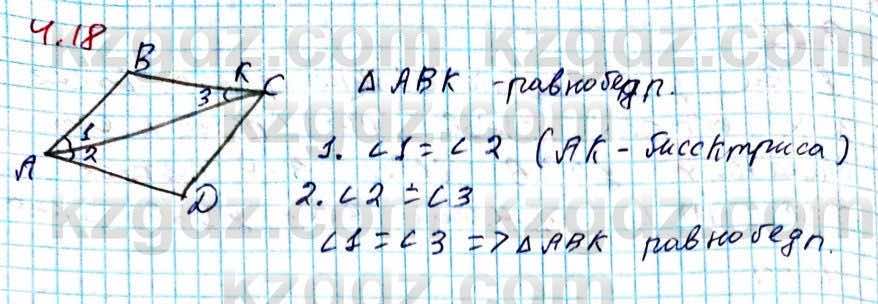 4.18
B
K
C
3
1
2
A
D
Δ ABK - равнобедр.
1. ∠1 = ∠2 (AK - биссектриса)
2. ∠2 = ∠3
∠1 = ∠3 => Δ ABK равнобедр.
kzgdz.com